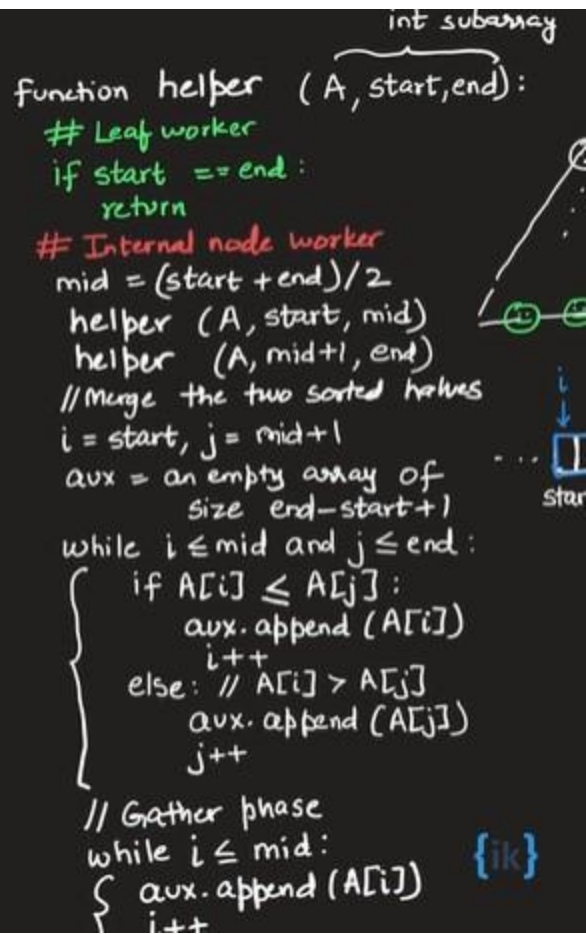 int subarray
function helper (A, start, end):
# Leaf worker
if start == end:
return
# Internal node worker
mid = (start + end)/2
helper (A, start, mid)
helper (A, mid+1, end)
// Merge the two sorted halves
i = start, j = mid+1
i
aux = an empty array of
size end-start+1
star
while i ≤ mid and j ≤ end:
if A[i] ≤ A[j]:
aux.append (A[i])
i++
else: // A[i] > A[j]
aux.append (A[j])
j++
// Gather phase
while i ≤ mid:
{ik}
aux.append (A[i])
i++